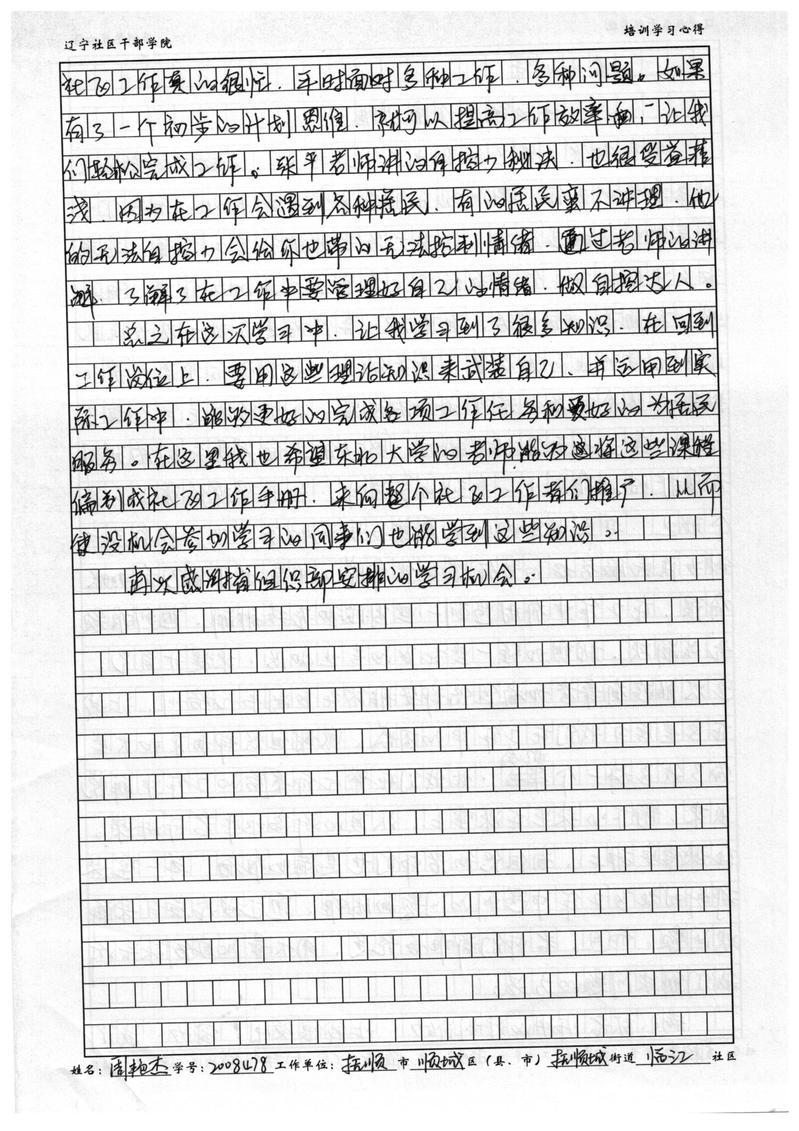 辽宁社区干部学院 培训学习心得
社区工作真的很忙，平时面对多种工作，多种问题。如果
有了一个初步的计划思维，就可以提高工作效率，让我
们轻松完成工作。张平老师讲的自控力秘决，也很受益
浅，因为在工作会遇到各种居民，有的居民蛮不讲理，他
的无法自控力会给你也带的无法控制情绪，通过老师的讲
解，了解了在工作中要管理好自己的情绪，做自控达人。
总之在这次学习中，让我学习到了很多知识，在回到
工作岗位上，要用这些理论知识来武装自己，并运用到实
际工作中，能够更好的完成各项工作任务和更好的为居民
服务。在这里我也希望东北大学的老师能够将这些课程
编制成社区工作手册，来向整个社区工作者们推广，从而
使没机会参加学习的同事们也能学到这些知识。
再次感谢省组织部安排的学习机会。
姓名：周艳杰 学号：2008478 工作单位：抚顺 市 顺城 区（县、市） 抚顺城 街道 临江 社区